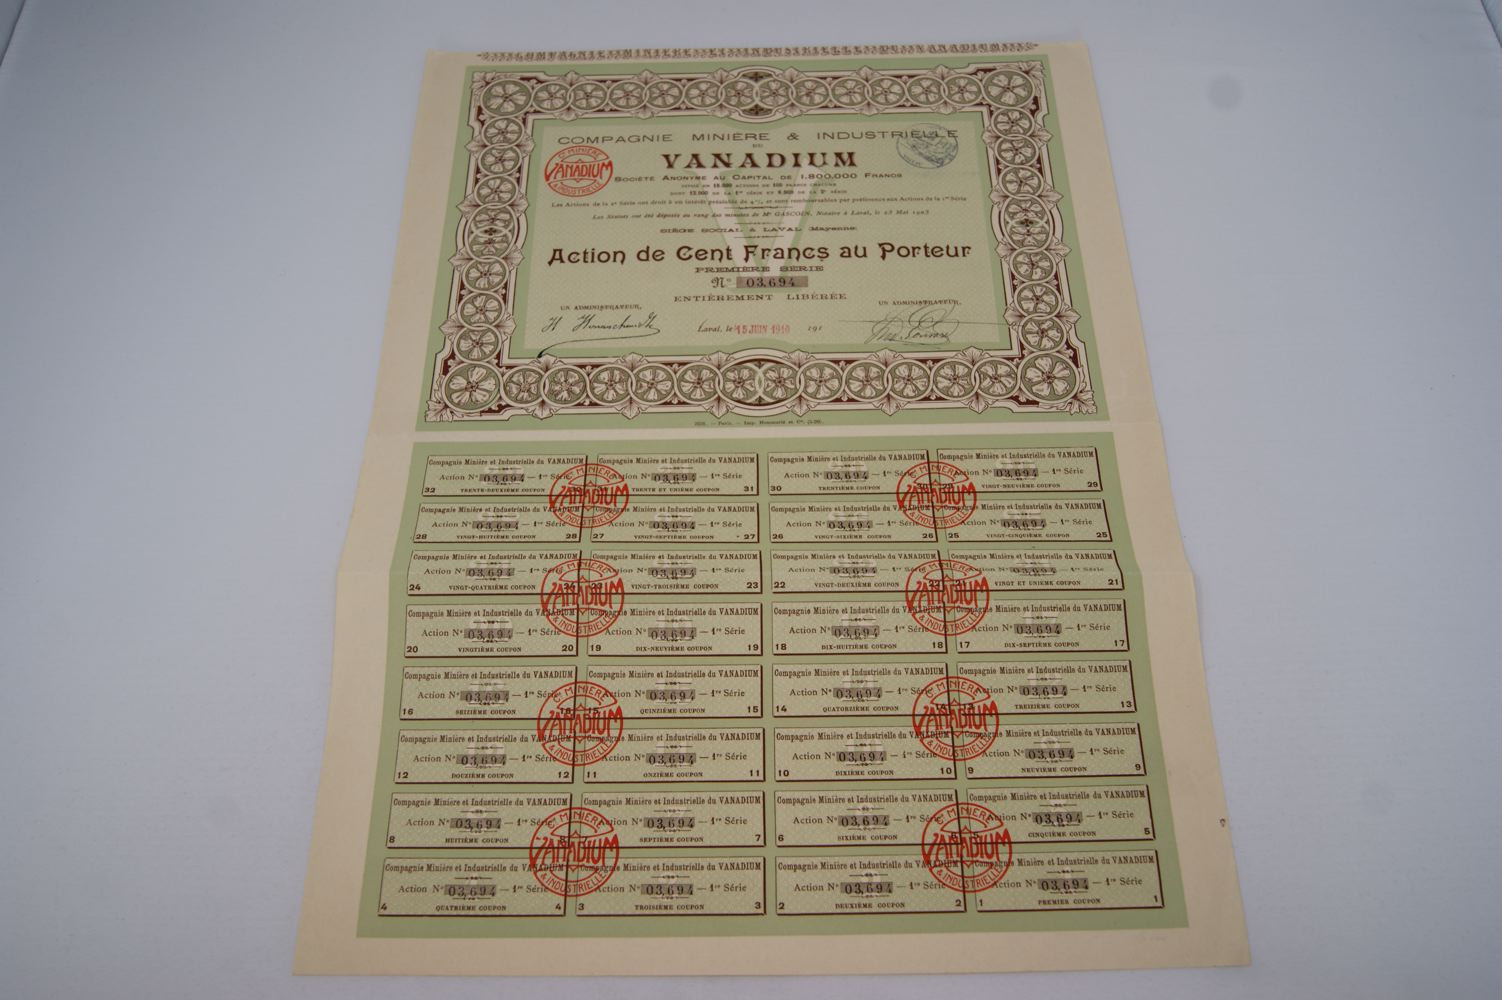 COMPAGNIE MINIÈRE ET INDUSTRIELLE DU VANADIUM
COMPAGNIE MINIÈRE & INDUSTRIELLE
DU
VANADIUM
Cie MINIÈRE
VANADIUM
& INDUSTRIELLE
Société Anonyme au Capital de 1.800.000 Francs
DIVISÉ EN 18.000 ACTIONS DE 100 FRANCS CHACUNE
DONT 12.000 DE LA 1re SÉRIE ET 6.000 DE LA 2e SÉRIE
Les Actions de la 2e Série ont droit à un intérêt préalable de 4%, et sont remboursables par préférence aux Actions de la 1re Série
Les Statuts ont été déposés au rang des minutes de Me GASCOIN, Notaire à Laval, le 23 Mai 1903
SIÈGE SOCIAL à LAVAL (Mayenne)
Action de Cent Francs au Porteur
PREMIÈRE SÉRIE
No 03,694
ENTIÈREMENT LIBÉRÉE
UN ADMINISTRATEUR, UN ADMINISTRATEUR,
Laval, le 15 JUIN 1910 191
Compagnie Minière et Industrielle du VANADIUM
Action No 03,694 — 1re Série
32 TRENTE-DEUXIÈME COUPON
Compagnie Minière et Industrielle du VANADIUM
Action No 03,694 — 1re Série
TRENTE ET UNIÈME COUPON 31
Compagnie Minière et Industrielle du VANADIUM
Action No 03,694 — 1re Série
30 TRENTIÈME COUPON
Compagnie Minière et Industrielle du VANADIUM
Action No 03,694 — 1re Série
VINGT-NEUVIÈME COUPON 29
Cie MINIÈRE
VANADIUM
& INDUSTRIELLE
Cie MINIÈRE
VANADIUM
& INDUSTRIELLE
Compagnie Minière et Industrielle du VANADIUM
Action No 03,694 — 1re Série
28 VINGT-HUITIÈME COUPON 28
Compagnie Minière et Industrielle du VANADIUM
Action No 03,694 — 1re Série
27 VINGT-SEPTIÈME COUPON 27
Compagnie Minière et Industrielle du VANADIUM
Action No 03,694 — 1re Série
26 VINGT-SIXIÈME COUPON 26
Compagnie Minière et Industrielle du VANADIUM
Action No 03,694 — 1re Série
25 VINGT-CINQUIÈME COUPON 25
Compagnie Minière et Industrielle du VANADIUM
Action No 03,694 — 1re Série
24 VINGT-QUATRIÈME COUPON 24
Compagnie Minière et Industrielle du VANADIUM
Action No 03,694 — 1re Série
23 VINGT-TROISIÈME COUPON 23
Compagnie Minière et Industrielle du VANADIUM
Action No 03,694 — 1re Série
22 VINGT-DEUXIÈME COUPON 22
Compagnie Minière et Industrielle du VANADIUM
Action No 03,694 — 1re Série
21 VINGT ET UNIÈME COUPON 21
Cie MINIÈRE
VANADIUM
& INDUSTRIELLE
Cie MINIÈRE
VANADIUM
& INDUSTRIELLE
Compagnie Minière et Industrielle du VANADIUM
Action No 03,694 — 1re Série
20 VINGTIÈME COUPON 20
Compagnie Minière et Industrielle du VANADIUM
Action No 03,694 — 1re Série
19 DIX-NEUVIÈME COUPON 19
Compagnie Minière et Industrielle du VANADIUM
Action No 03,694 — 1re Série
18 DIX-HUITIÈME COUPON 18
Compagnie Minière et Industrielle du VANADIUM
Action No 03,694 — 1re Série
17 DIX-SEPTIÈME COUPON 17
Compagnie Minière et Industrielle du VANADIUM
Action No 03,694 — 1re Série
16 SEIZIÈME COUPON 16
Compagnie Minière et Industrielle du VANADIUM
Action No 03,694 — 1re Série
15 QUINZIÈME COUPON 15
Compagnie Minière et Industrielle du VANADIUM
Action No 03,694 — 1re Série
14 QUATORZIÈME COUPON 14
Compagnie Minière et Industrielle du VANADIUM
Action No 03,694 — 1re Série
13 TREIZIÈME COUPON 13
Cie MINIÈRE
VANADIUM
& INDUSTRIELLE
Cie MINIÈRE
VANADIUM
& INDUSTRIELLE
Compagnie Minière et Industrielle du VANADIUM
Action No 03,694 — 1re Série
12 DOUZIÈME COUPON 12
Compagnie Minière et Industrielle du VANADIUM
Action No 03,694 — 1re Série
11 ONZIÈME COUPON 11
Compagnie Minière et Industrielle du VANADIUM
Action No 03,694 — 1re Série
10 DIXIÈME COUPON 10
Compagnie Minière et Industrielle du VANADIUM
Action No 03,694 — 1re Série
9 NEUVIÈME COUPON 9
Compagnie Minière et Industrielle du VANADIUM
Action No 03,694 — 1re Série
8 HUITIÈME COUPON 8
Compagnie Minière et Industrielle du VANADIUM
Action No 03,694 — 1re Série
SEPTIÈME COUPON 7
Compagnie Minière et Industrielle du VANADIUM
Action No 03,694 — 1re Série
6 SIXIÈME COUPON 6
Compagnie Minière et Industrielle du VANADIUM
Action No 03,694 — 1re Série
5 CINQUIÈME COUPON 5
Cie MINIÈRE
VANADIUM
& INDUSTRIELLE
Cie MINIÈRE
VANADIUM
& INDUSTRIELLE
Compagnie Minière et Industrielle du VANADIUM
Action No 03,694 — 1re Série
4 QUATRIÈME COUPON 4
Compagnie Minière et Industrielle du VANADIUM
Action No 03,694 — 1re Série
3 TROISIÈME COUPON 3
Compagnie Minière et Industrielle du VANADIUM
Action No 03,694 — 1re Série
2 DEUXIÈME COUPON 2
Compagnie Minière et Industrielle du VANADIUM
Action No 03,694 — 1re Série
1 PREMIER COUPON 1